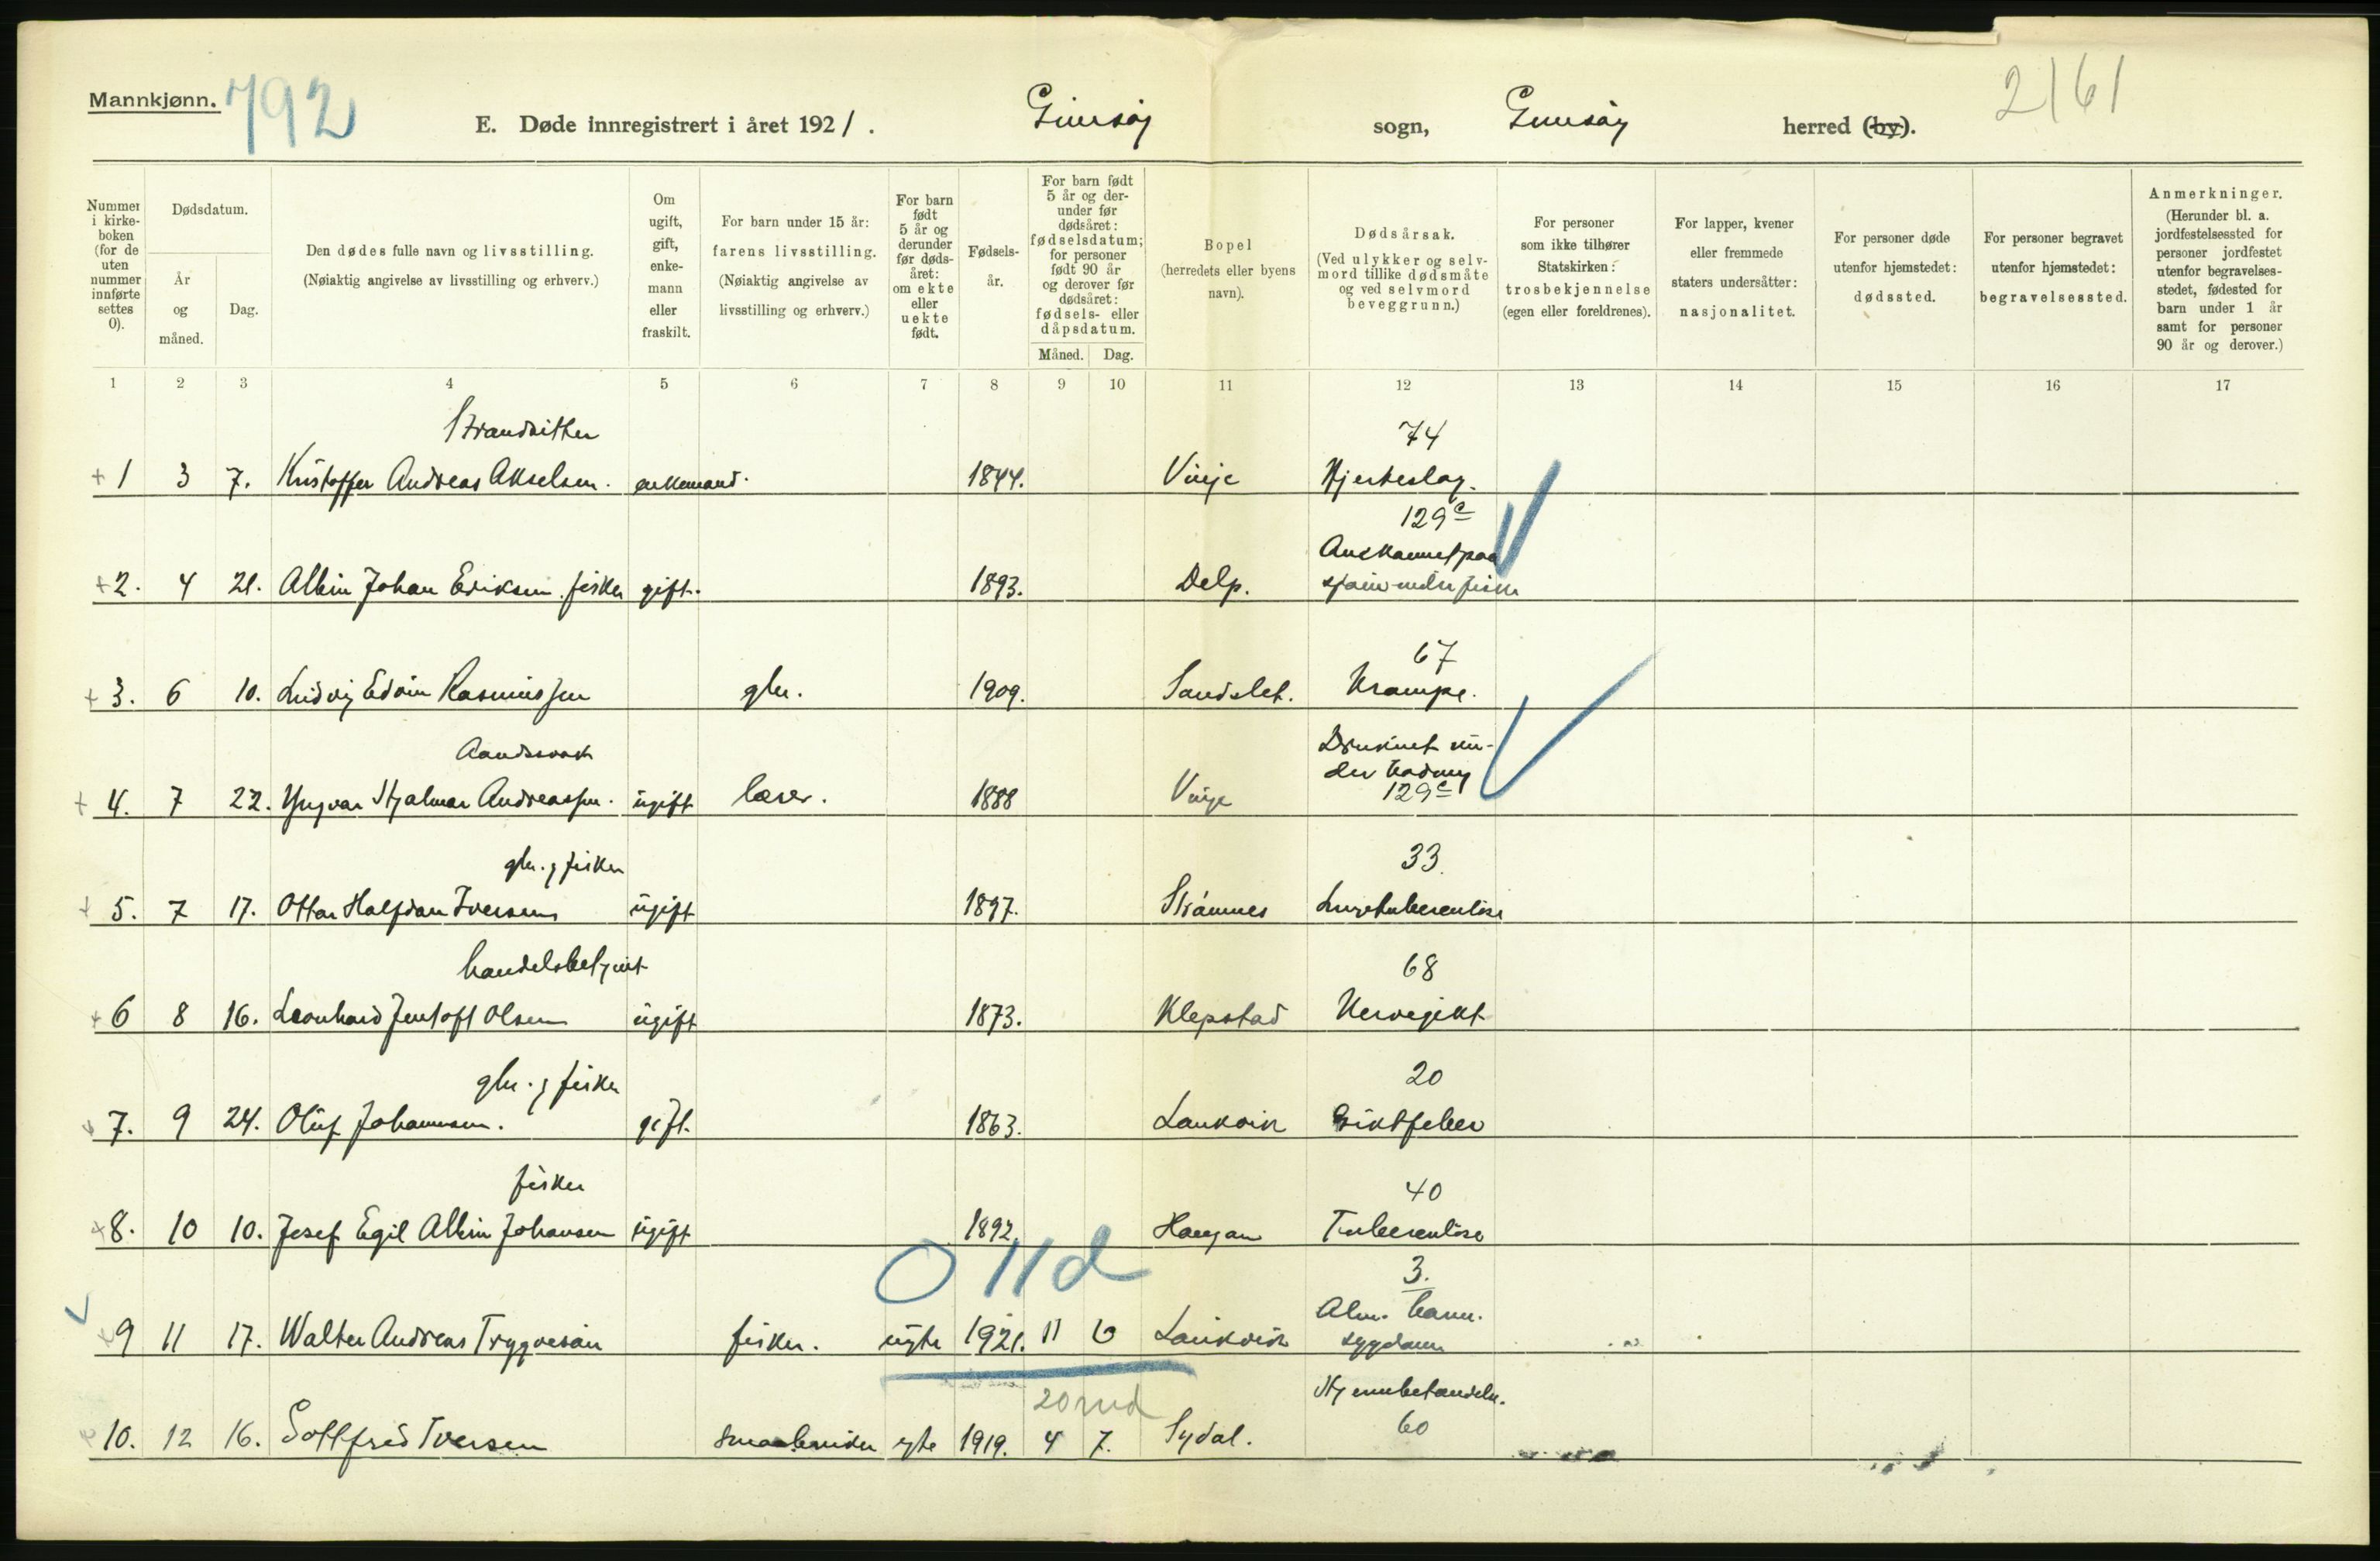 Mannkjønn. 792
E. Døde innregistrert i året 1921. Gimsøy sogn, Gimsøy herred (by). 2161
Nummer i kirke-boken (for de uten nummer innførte settes 0).
Dødsdatum.
År og måned.
Dag.
Den dødes fulle navn og livsstilling.
(Nøiaktig angivelse av livsstilling og erhverv.)
Om ugift, gift, enke-mann eller fraskilt.
For barn under 15 år:
farens livsstilling.
(Nøiaktig angivelse av livsstilling og erhverv.)
For barn født 5 år og derunder før døds-året: om ekte eller uekte født.
Fødsels-år.
For barn født 5 år og der-under før dødsåret: fødselsdatum; for personer født 90 år og derover før dødsåret: fødsels- eller dåpsdatum.
Måned. Dag.
Bopel
(herredets eller byens navn).
Dødsårsak.
(Ved ulykker og selv-mord tillike dødsmåte og ved selvmord beveggrunn.)
For personer som ikke tilhører Statskirken: trosbekjennelse (egen eller foreldrenes).
For lapper, kvener eller fremmede staters undersåtter: nasjonalitet.
For personer døde utenfor hjemstedet: dødssted.
For personer begravet utenfor hjemstedet: begravelsessted.
Anmerkninger.
(Herunder bl. a. jordfestelsessted for personer jordfestet utenfor begravelses-stedet, fødested for barn under 1 år samt for personer 90 år og derover.)
1 2 3 4 5 6 7 8 9 10 11 12 13 14 15 16 17
Strandsitter 74
+ 1 3 7. Kristoffer Andreas Akselsen. enkemand. 1844. Vinje Hjerteslag.
129 c
+ 2. 4 21. Albin Johan Eriksen. fisker gift. 1893. Delp. sjøen under fiske
67
+ 3. 6 10. Ludvig Edvin Rasmussen gbr. 1909. Sandslet. Krampe.
Aandssvak Druknet un-
der badning
+ 4. 7 22. Yngvar Hjalmar Andreassen. ugift lærer. 1888 Vinje 129 c
gbr. & fisker 33
+ 5. 7 17. Ottar Halfdan Iversen ugift 1897. Strømnes Lungetuberculose
handelsbetjent 68
+ 6 8 16. Leonhard Jentoft Olsen ugift 1873. Klepstad Nervegikt
gbr. & fisker 20
+ 7. 9 24. Oluf Johannesen. gift. 1863. Laukvik Giktfeber
fisker 40
+ 8. 10 10. Josef Egil Albin Johansen ugift 1892. Haugan Tuberculose
0 11 d 3.
Alm. barne-
+ 9 11 17. Walter Andreas Trygvesøn fisker. ugte 1921. 11 6 Laukvik sygdom
20 md Hjernebetændelse.
10. 12 16. Gottfred Iversen smaabruker egte 1919. 4 7. Sydal. 60